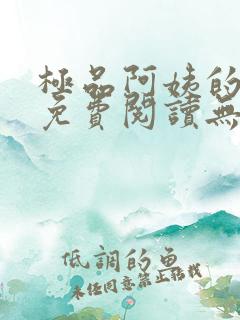 極品阿姨的
免費閱讀無
低調的魚
未经同意禁止转载